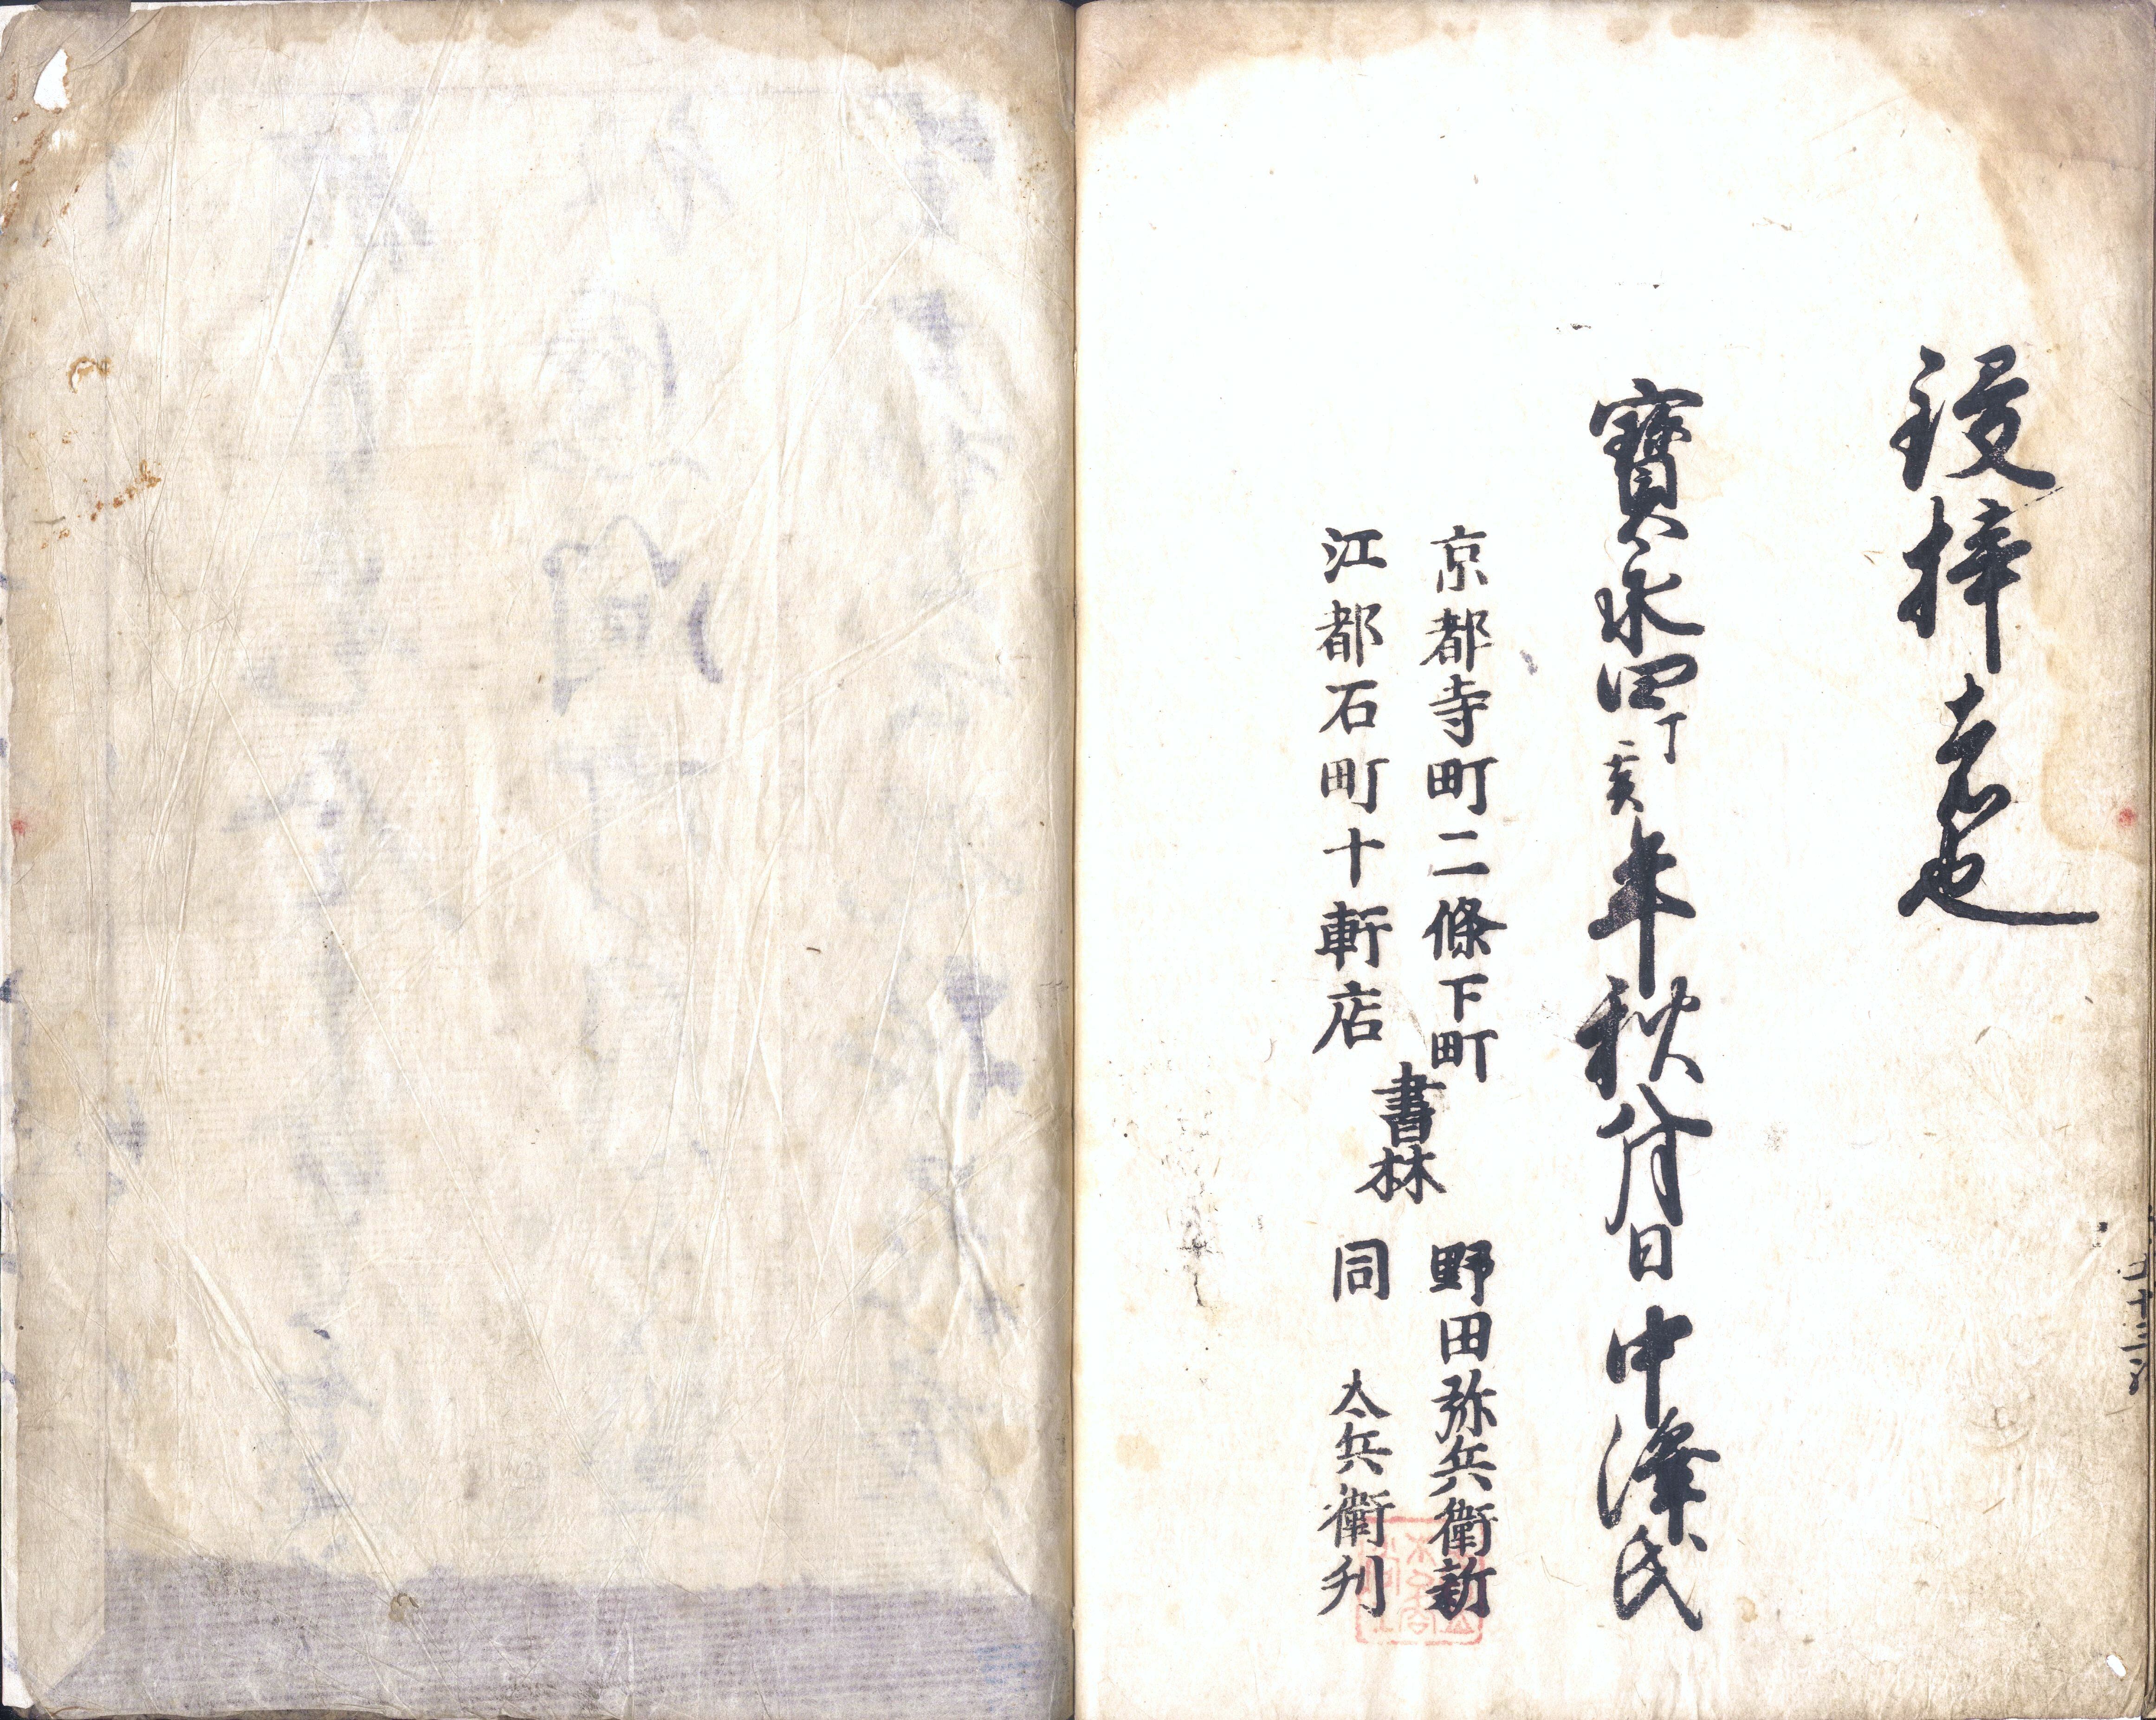 鋟梓者也
寶永四丁亥年秋八月日 中澤氏
京都寺町二條下町
江都石町十軒店
書林
野田弥兵衛新
同 太兵衛刋